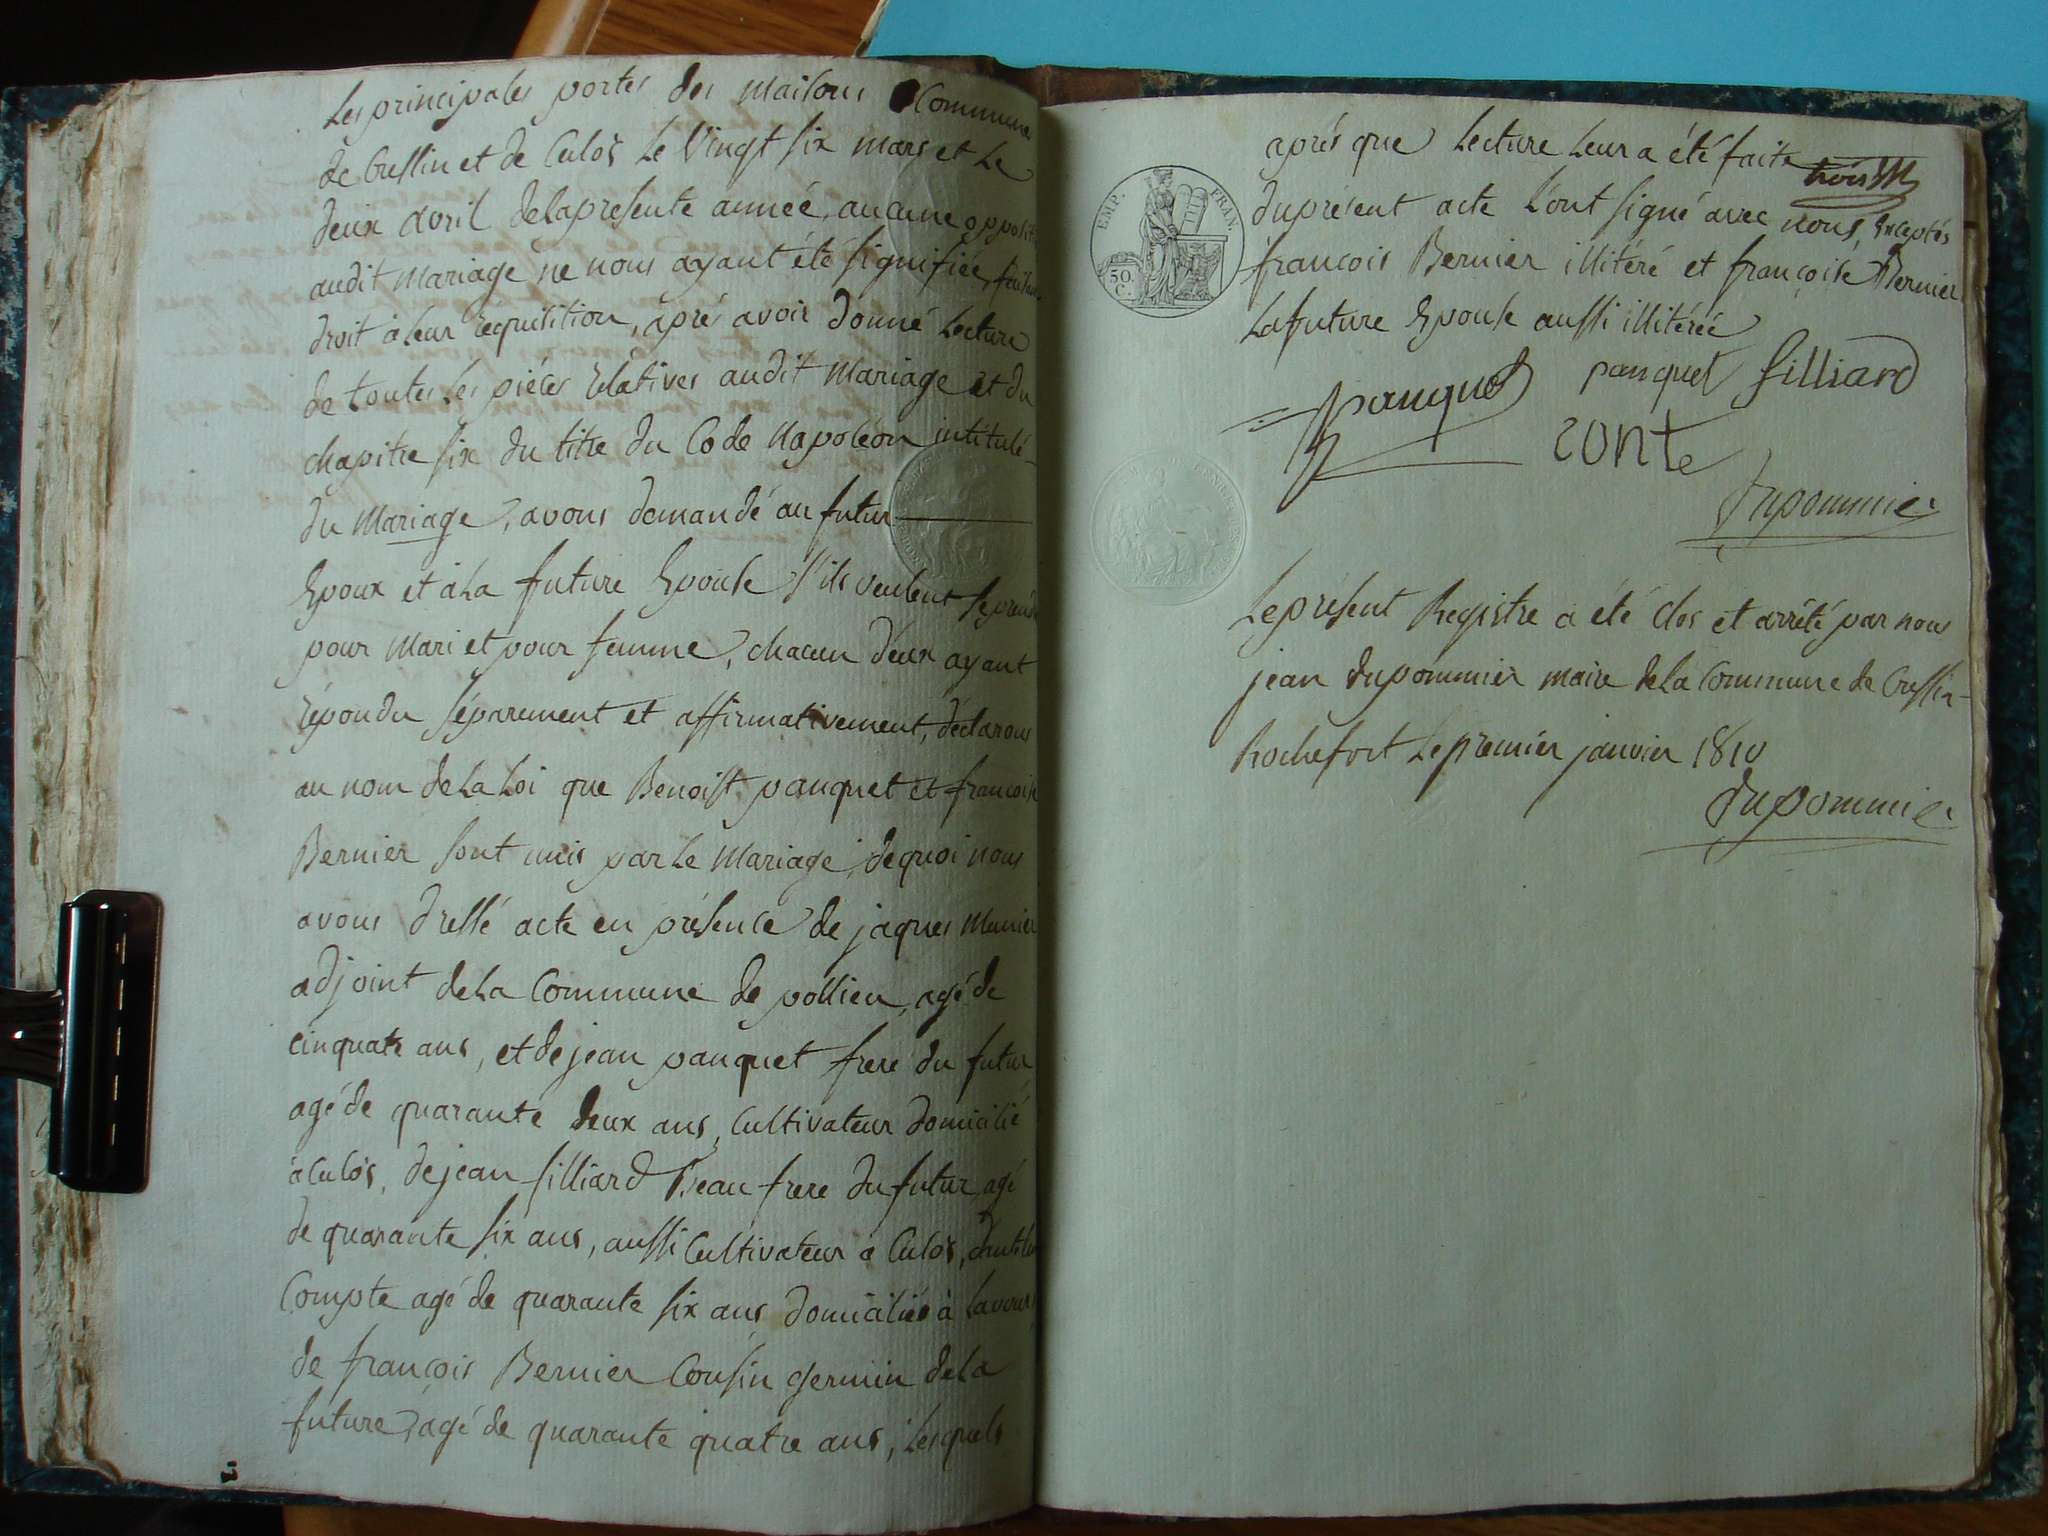 Les principales portes des maisons Commune
de Cressin et de Culós Le Vingt six mars et Le
deux avril delapresente année, aucune opposit
audit mariage ne nous ayant été signifiée,
droit à Leur requisition, aprés avoir donné Lecture
de toutes Les piéces rélatives audit mariage et du
chapitre six du titre du Code Napoléon intitulé
du Mariage, avons demandé au futur
Epoux et à La future Epouse s'ils veulent se prendre
pour mari et pour femme, chacun d'eux ayant
répondu séparement et affirmativement, déclarons
au nom de La Loi que Benoist panquet et francoise
Bernier sont unis par Le Mariage, de quoi nous
avons dressé acte en présence de jaques Munier
adjoint deLa Commune de pollieu, agé de
cinquate ans, et de jean panquet frere du futur
agé de quarante deux ans, Cultivateur domicilié
à Culós, de jean silliard Beau frere du futur agé
de quarante six ans, aussi Cultivateur à Culós,
Compte agé de quarante six ans domicilié à Lavours
de françois Bernier Cousin germin deLa
future, agé de quarante quatre ans, Lesquels
aprés que Lecture Leur a été faite
EMP. FRAN.
50 C.
du présent acte L'ont signé avec nous, Exceptés
françois Bernier illitéré et françoise Bernier
La future Epouse aussi illitérée
panquet panquet silliard
conte
Dupommier
Le présent Registre a été clos et arrêté par nous
jean dupommier maire deLa Commune de Cressin
Rochefort Le premier janvier 1810
Dupommier